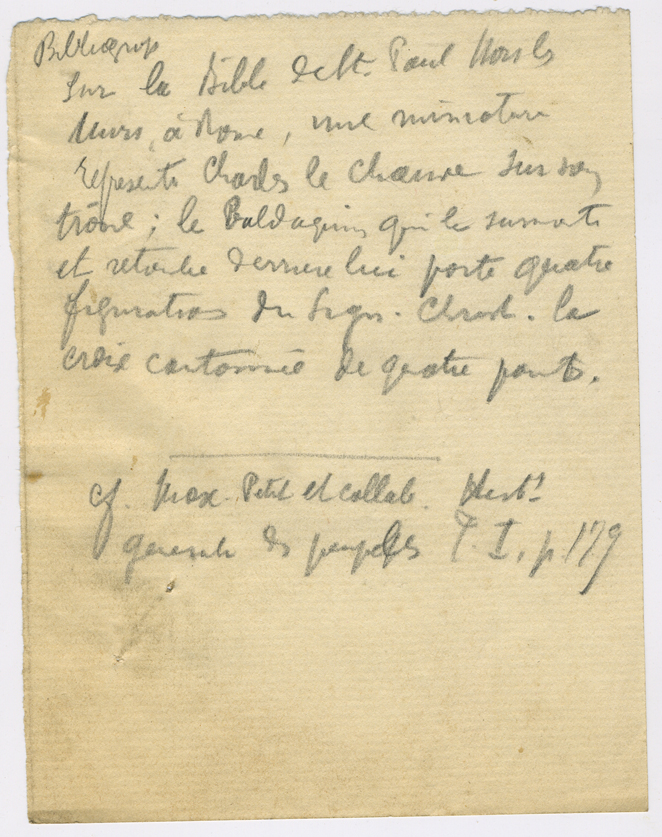 Bibliograp
Sur la Bible de St. Paul Hors les
Murs, à Rome, une miniature
représente Charles le Chauve sur son
trône ; le Baldaquin qui le surmonte
et retombe derriere lui porte quatre
figurations du Sign. Christ. la
croix cantonnée de quatre points.
cf. Max. Petit et collab. Hist
generale des peuples T. I, p. 179